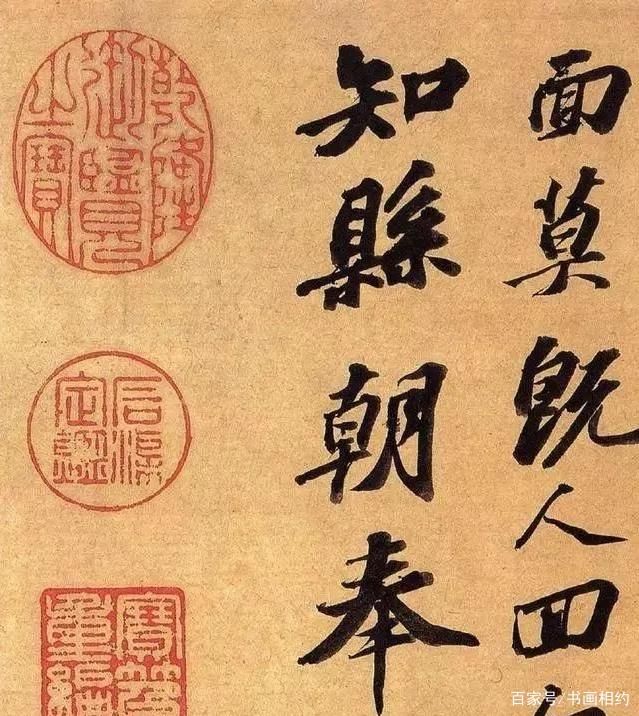 面莫既人回
知縣朝奉
乾隆御覽之寶
石渠定鑑
寶笈重編
百家号/书画相约